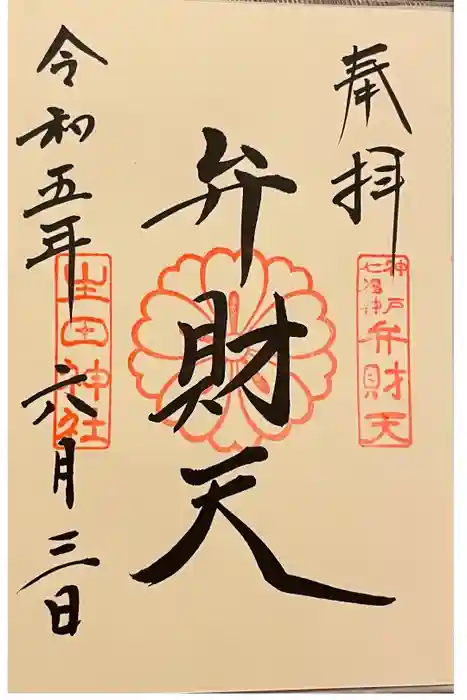 奉拝
神戸
七福神
弁財天
弁財天
令和五年六月三日
生田神社